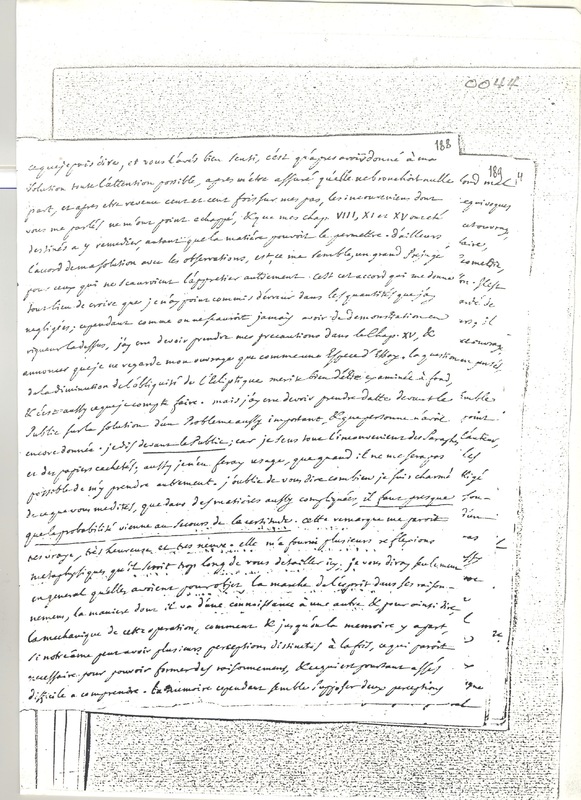 0044
188
189
ce que je puis dire, et vous l'avés bien senti, c'est qu'apres avoir donné à ma
solution toute l'attention possible, apres m'etre assuré qu'elle ne bronchoit nulle
part, et apres etre revenu cent et cent fois sur mes pas, les inconveniens dont
vous me parlés ne m'ont point echappé, & que mes chap. VIII, XI et XV ont eté
destinés a y remedier autant que la matière pouvoit le permettre. d'ailleurs
l'accord de ma solution avec les observations, est ce me semble, un grand Préjugé
pour ceux qui ne sçauroient l'apprétier autrement. c'est cet accord qui me donne
tout lieu de croire que je n'ay point commis d'erreur dans les quantités que j'ay
negligées; cependant comme on ne sauroit jamais avoir de demonstration en
rigueur la dessus, j'ay cru devoir prendre mes precautions dans le Chap. XV, &
annoncer que je ne regarde mon ouvrage que comme une Espece d'Essay. la question
de la diminution de l'obliquité de l'Ecliptique merite bien d'être examinée à fond,
& c'est aussy ce que je compte faire. mais j'ay cru devoir prendre datte devant le
Public sur la solution d'un Probleme aussy important, & que personne n'avoit
encore donnée. je dis devant le Public; car je sens tout l'inconvenient des Paraphes
et des papiers cachetés; aussy je n'en feray usage, que quand il ne me sera pas
possible de m'y prendre autrement. j'oublie de vous dire combien je suis charmé
de ce que vous me dites, que dans des matieres aussy compliquées, il faut presque
que la probabilité vienne au secours de la certitude. cette remarque me paroit
tres vraye, très heureuse et tres neuve. elle m'a fourni plusieurs reflexions
metaphysiques qu'il seroit trop long de vous detailler icy; je vous diray seulement
en general qu'elles avoient pour objet la marche de l'esprit dans ses raison-
nemens, la maniere dont il va d'une connaissance à une autre & pour ainsi dire
la mechanique de cette operation, comment & jusqu'où la memoire y a part,
si notre ame peut avoir plusieurs perceptions distinctes à la fois, ce qui paroit
necessaire pour pouvoir former des raisonnemens, & ce qui est pourtant assés
difficile a comprendre. la memoire cependant semble supposer deux perceptions